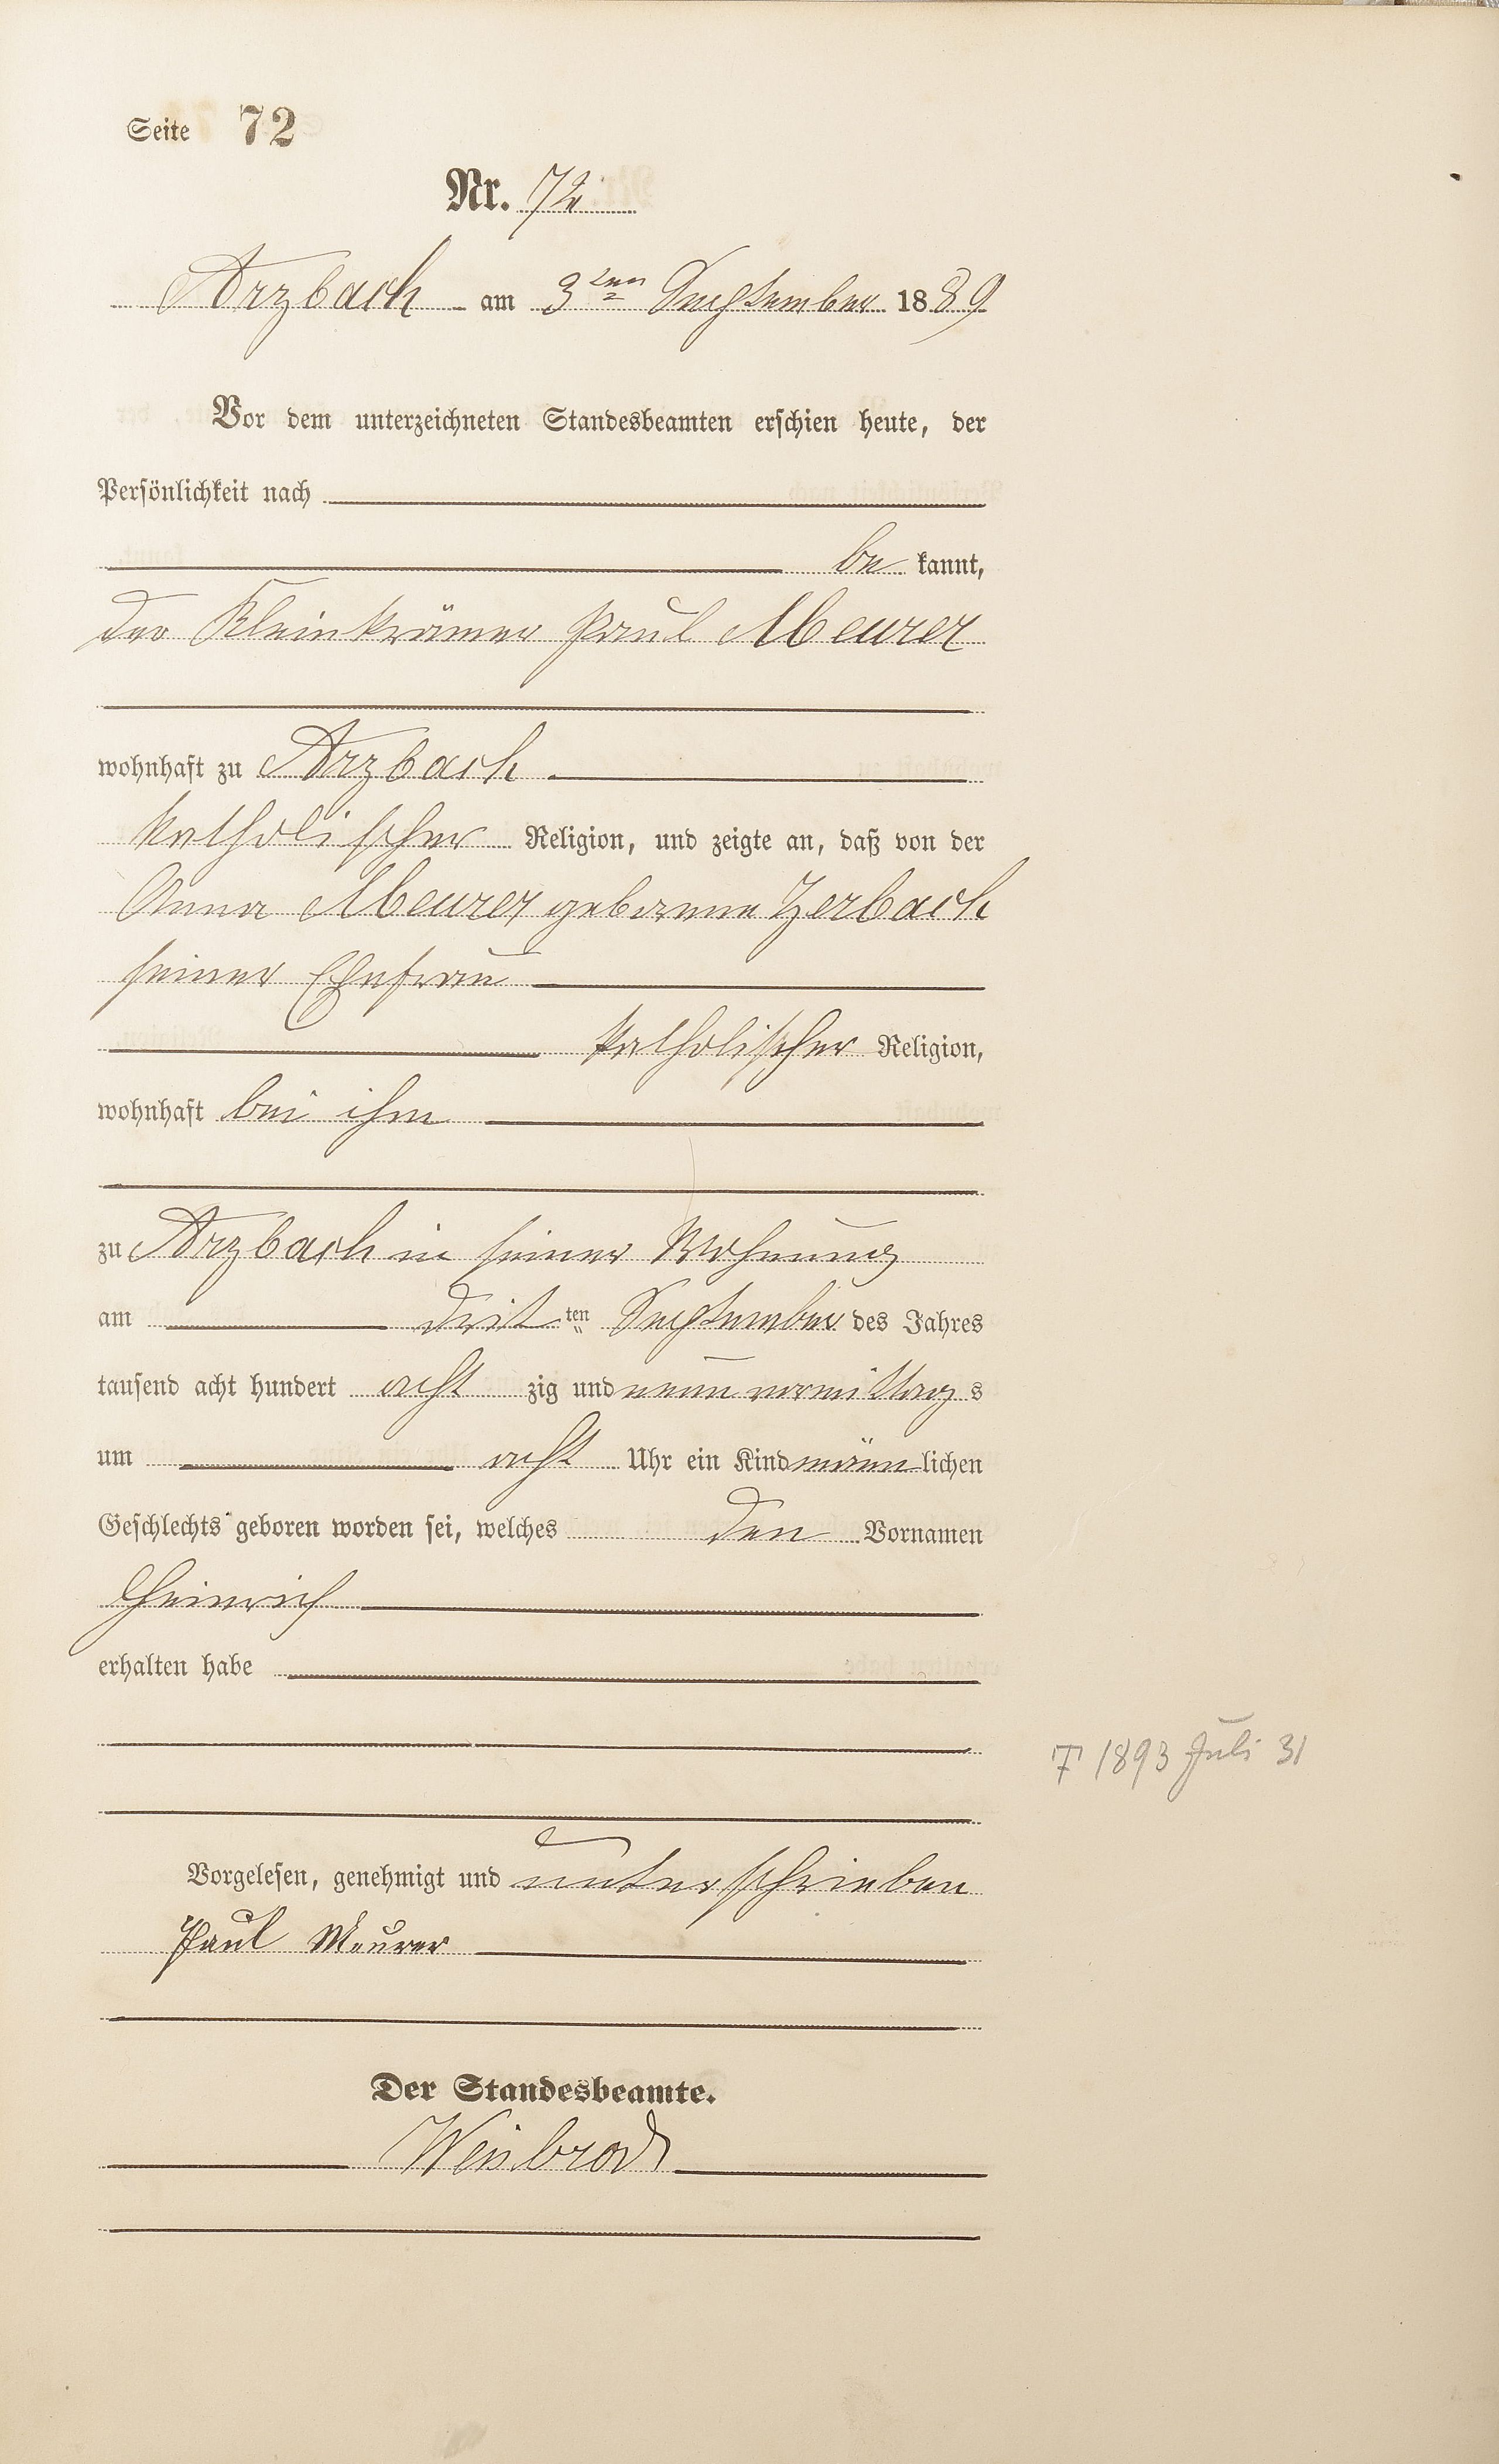 Seite 72
Nr. 72
Arzbach am 3ten September 1889
Vor dem unterzeichneten Standesbeamten erschien heute, der
Persönlichkeit nach
be kannt,
der Kleinkrämer Paul Meurer
wohnhaft zu Arzbach
katholischer Religion, und zeigte an, daß von der
Anna Meurer geborene Zerbach
seiner Ehefrau
katholischer Religion,
wohnhaft bei ihm
zu Arzbach in seiner Wohnung
am dritten September des Jahres
tausend acht hundert acht zig und neun vormittags
um acht Uhr ein Kind männlichen
Geschlechts geboren worden sei, welches den Vornamen
Heinrich
erhalten habe
† 1893 Juli 31
Vorgelesen, genehmigt und unterschrieben
Paul Meurer
Der Standesbeamte.
Weisbrod